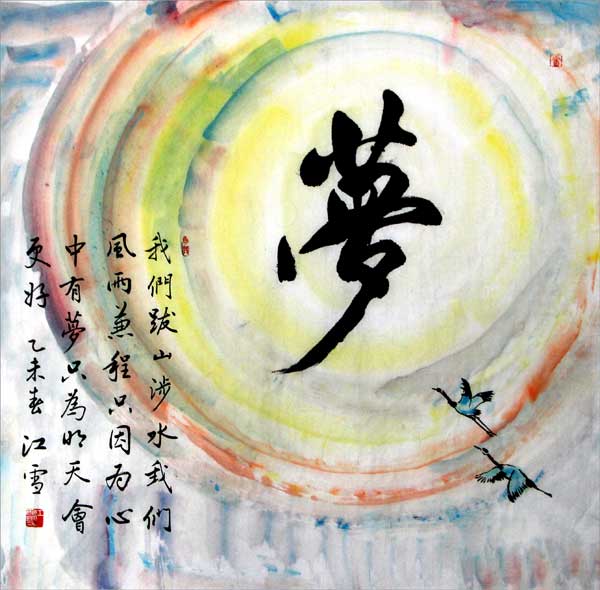 夢
我們跋山涉水我们
風雨兼程只因为心
中有夢只為明天會
更好 乙未春 江雪